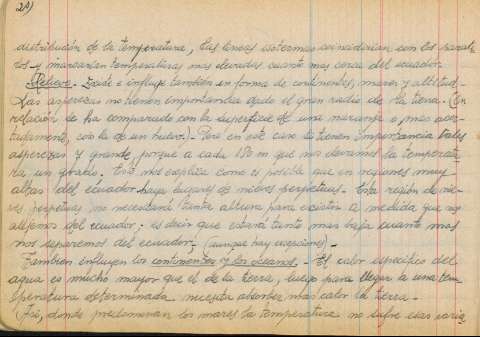 20)
distribución de la temperatura, las líneas isotermas coincidirían con los parale
los y marcarían temperaturas mas elevadas cuanto mas cerca del ecuador.
Relieve.- Existe e influye también en forma de continentes, mares y altitud.-
Las asperezas no tienen importancia dado el gran radio de la tierra. (En
relación se ha comparado con la superficie de una naranja o, mas acer-
tadamente, con la de un huevo).- Pero en este caso si tienen importancia tales
asperezas y grande, porque a cada 180 m que nos elevamos la temperatu
ra un grado. Esto nos explica como es posible que en regiones muy
altas del ecuador haya lugares de nieves perpetuas.- Esta región de nie-
ves perpetuas no necesitará tanta altura para existir a medida que nos
alejemos del ecuador; es decir que estará tanto mas baja cuanto mas
nos separemos del ecuador.- (aunque hay excepciones).-
También influyen los continentes y los océanos.- El calor específico del
agua es mucho mayor que el de la tierra, luego para llegar a una tem
peratura determinada necesita absorber mas calor la tierra.-
Así, donde predominan los mares la temperatura no sufre esas varia